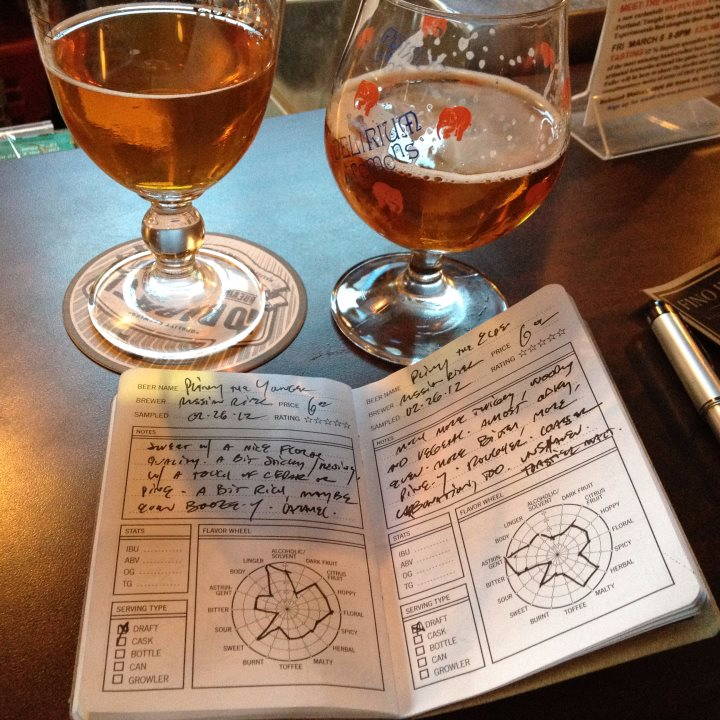 MEET THE
FRI MARCH 5
DELIRIUM
FINO
BEER NAME Pliny the Younger
BREWER Russian River PRICE 6 oz
SAMPLED 02-26-12 RATING ☆☆☆☆☆
NOTES
SWEET W/ A NICE FLORAL
QUALITY. A BIT STICKY/RESINY,
W/ A TOUCH OF CEDAR OR
PINE. A BIT RICH, MAYBE
EVEN BOOZE-Y. CARAMEL.
STATS
IBU
ABV
OG
TG
SERVING TYPE
DRAFT
CASK
BOTTLE
CAN
GROWLER
FLAVOR WHEEL
ALCOHOLIC/
SOLVENT
DARK FRUIT
CITRUS
FRUIT
HOPPY
FLORAL
SPICY
HERBAL
MALTY
TOFFEE
BURNT
SWEET
SOUR
BITTER
ASTRIN-
GENT
BODY
LINGER
BEER NAME Pliny the Elder
BREWER Russian River PRICE 6 oz
SAMPLED 02-26-12 RATING ☆☆☆☆☆
NOTES
MUCH MORE WOODY
AND VEGETAL. ALMOST
EVEN MORE BITTER, MORE
PINE-Y. ROUGHER, COARSER
CARBONATION, TOO.
STATS
IBU
ABV
OG
TG
SERVING TYPE
DRAFT
CASK
BOTTLE
CAN
GROWLER
FLAVOR WHEEL
ALCOHOLIC/
SOLVENT
DARK FRUIT
CITRUS
FRUIT
HOPPY
FLORAL
SPICY
HERBAL
MALTY
TOFFEE
BURNT
SWEET
SOUR
BITTER
ASTRIN-
GENT
BODY
LINGER